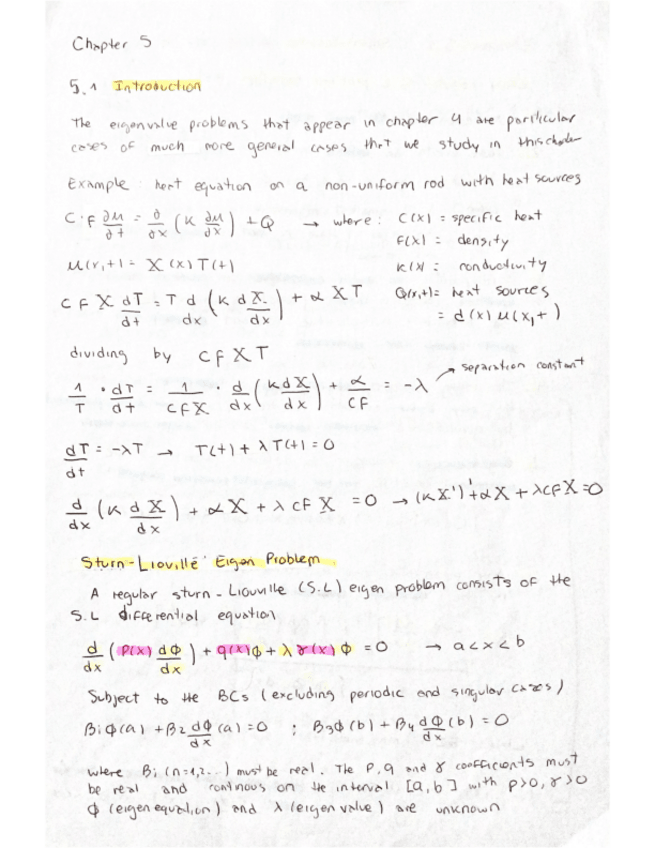 Chapter 5
5.1 Introduction
The eigenvalue problems that appear in chapter 4 are particular
cases of much more general cases that we study in this chapter
Example: heat equation on a non-uniform rod with heat sources
C·f ∂u/∂t = ∂/∂x (K ∂u/∂x) + Q → where: C(x) = specific heat
f(x) = density
u(x,t) = X(x)T(t) K(x) = conductivity
C f X dT/dt = T d/dx (K dX/dx) + α X T Q(x,t) = heat sources
= α(x) u(x,t)
dividing by C f X T
1/T · dT/dt = 1/(C f X) · d/dx (K dX/dx) + α/(C f) = -λ → separation constant
dT/dt = -λT → T(t) + λ T(t) = 0
d/dx (K dX/dx) + α X + λ C f X = 0 → (K X')' + α X + λ C f X = 0
Sturn-Liouville Eigen Problem
A regular sturn-Liouville (S.L) eigen problem consists of the
S.L differential equation
d/dx (P(x) dΦ/dx) + q(x)Φ + λ γ(x) Φ = 0 → a < x < b
Subject to the BCs (excluding periodic and singular cases)
B1 Φ(a) + B2 dΦ/dx (a) = 0 ; B3 Φ(b) + B4 dΦ/dx (b) = 0
where Bi (n=1,2...) must be real. The P, q and γ coefficients must
be real and continous on the interval [a,b] with p>0, γ>0
Φ (eigen equation) and λ (eigen value) are unknown